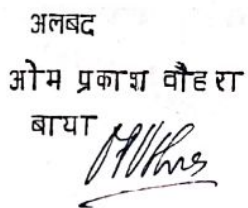 अलबद
ओम प्रकाश वौहरा
बाया